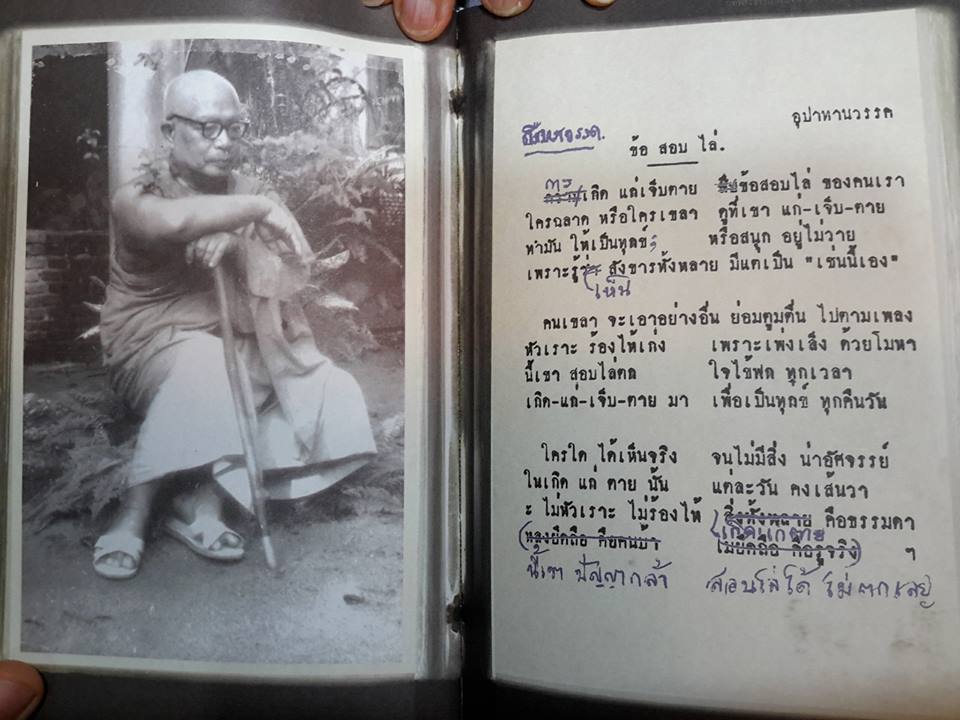 อุปาทานวรรค
ข้อ สอบ ไล่.
การ
เกิด แก่เจ็บตาย ข้อสอบไล่ ของคนเรา
ใครฉลาด หรือใครเขลา ดูที่เขา แก่-เจ็บ-ตาย
ทำมัน ให้เป็นทุกข์; หรือสนุก อยู่ไม่วาย
เพราะรู้ สังขารทั้งหลาย มีแต่เป็น "เช่นนี้เอง"
เห็น
คนเขลา จะเอาอย่างอื่น ย่อมตูมตื่น ไปตามเพลง
หัวเราะ ร้องไห้เก่ง เพราะเพ่งเล็ง ด้วยโมหา
นี้เขา สอบไล่ตก ใจไข้ฟก ทุกเวลา
เกิด-แก่-เจ็บ-ตาย มา เพื่อเป็นทุกข์ ทุกคืนวัน
ใครใด ได้เห็นจริง จนไม่มีสิ่ง น่าอัศจรรย์
ในเกิด แก่ ตาย นั้น แต่ละวัน คงเส้นวา
ะ ไม่หัวเราะ ไม่ร้องไห้ สิ่งทั้งหลาย คือธรรมดา
เกิดแก่ตาย
หลงยึดถือ คือคนบ้า ไม่ยึดถือ คือรู้จริง ๆ
นี้เขา ปัญญากล้า สอบไล่ได้ ไม่ตกเลย